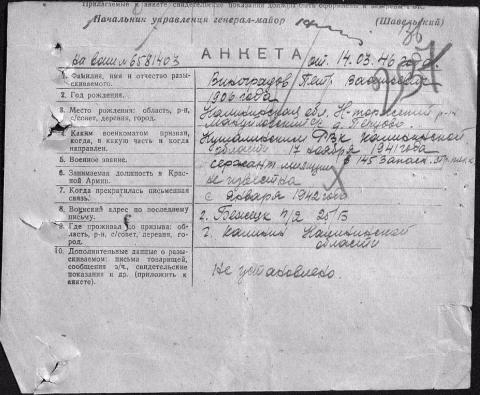 Прилагаемые к анкете свидетельские показания должны быть оформлены и заверены
Начальник управления генерал-майор (Шавельский)
На ваш № 6581403
АНКЕТА
от 14.03.46 года
1. Фамилия, имя и отчество разыскиваемого.
Виноградов Петр
2. Год рождения.
1906 года
3. Место рождения: область, р-н, с/совет, деревня, город.
Калининская обл. Н-торжский р-н
д.
4. Каким военкоматом призван, когда, в какую часть и когда направлен.
Куйбышевским РВК Калининской
области 17 ноября 1941 года
в 145 запасн. стр. полк
5. Военное звание.
сержант
6. Занимаемая должность в Красной Армии.
не известна
7. Когда прекратилась письменная связь.
с января 1942 года
8. Воинский адрес по последнему письму.
г. Бежецк п/я 25
9. Где проживал до призыва: область, р-н, с/совет, деревня, город.
г. Калинин Калининской
области
10. Дополнительные данные о разыскиваемом: письма товарищей, сообщения в/ч, свидетельские показания и др. (приложить к анкете).
Не установлено.